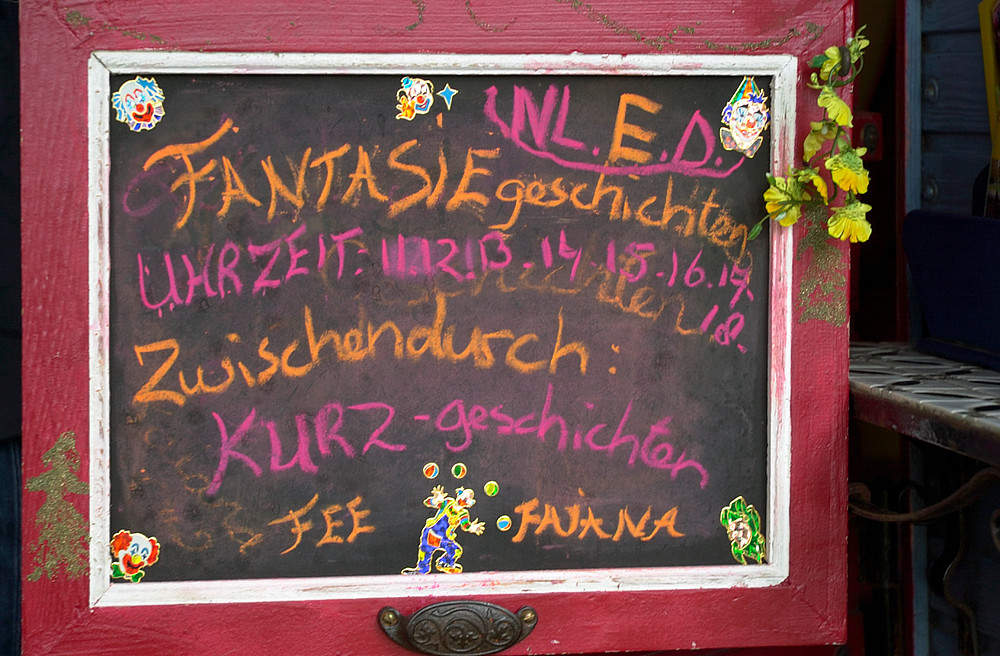 NL.E.D.
FANTASIEgeschichten
UHRZEIT: 11.12.13.14.15.16.17.
18.
Zwischendurch:
KURZ-geschichten
FEE FAJANA